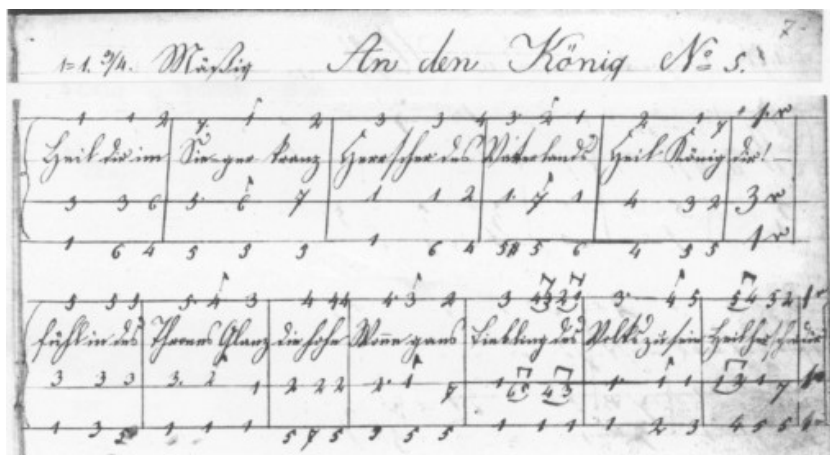 7
1=1. 3/4. Mäßig An den König No 5.
1 1 2 7. 1 2 3 3 4 3. 2 1 2 1 7
Heil dir im Sie-ger kranz Herrscher des Vaterlands Heil König dir!
3 3 6 5. 6 7 1 1 2 1. 7 1 4 3 2 3
1 6 4 5 5 5 1 6 4 5 6 4 5 5 1
5 5 5 5. 4 3 4 4 4 4. 3 2 3 3. 4 5 5 4 3 2 1
fühl in des Thrones Glanz die hohe Wonne ganz Liebling des Volks zu sein Heil dir
3 3 3 3. 2 1 2 2 2 2. 1 7 1 4 3 1. 1 1 1 7
1 3 5 1 1 1 5 5 5 5 1 1 1 1 2 3 4 5 5